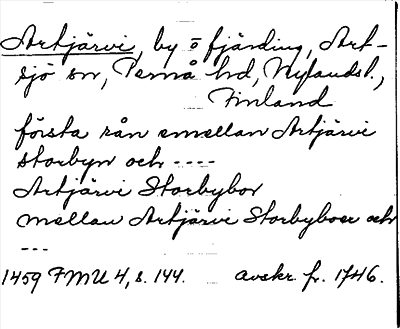 Artjärvi, by o fjärding, Art-
sjö sn, Pernå hd, Nylandsl.,
Finland
första rån emellan Artjärvi
storbyn och ----
Artjärvi Storbybor
mellan Artjärvi Storbyboer och
---
1459 FMU 4, s. 144. avskr. fr. 1746.